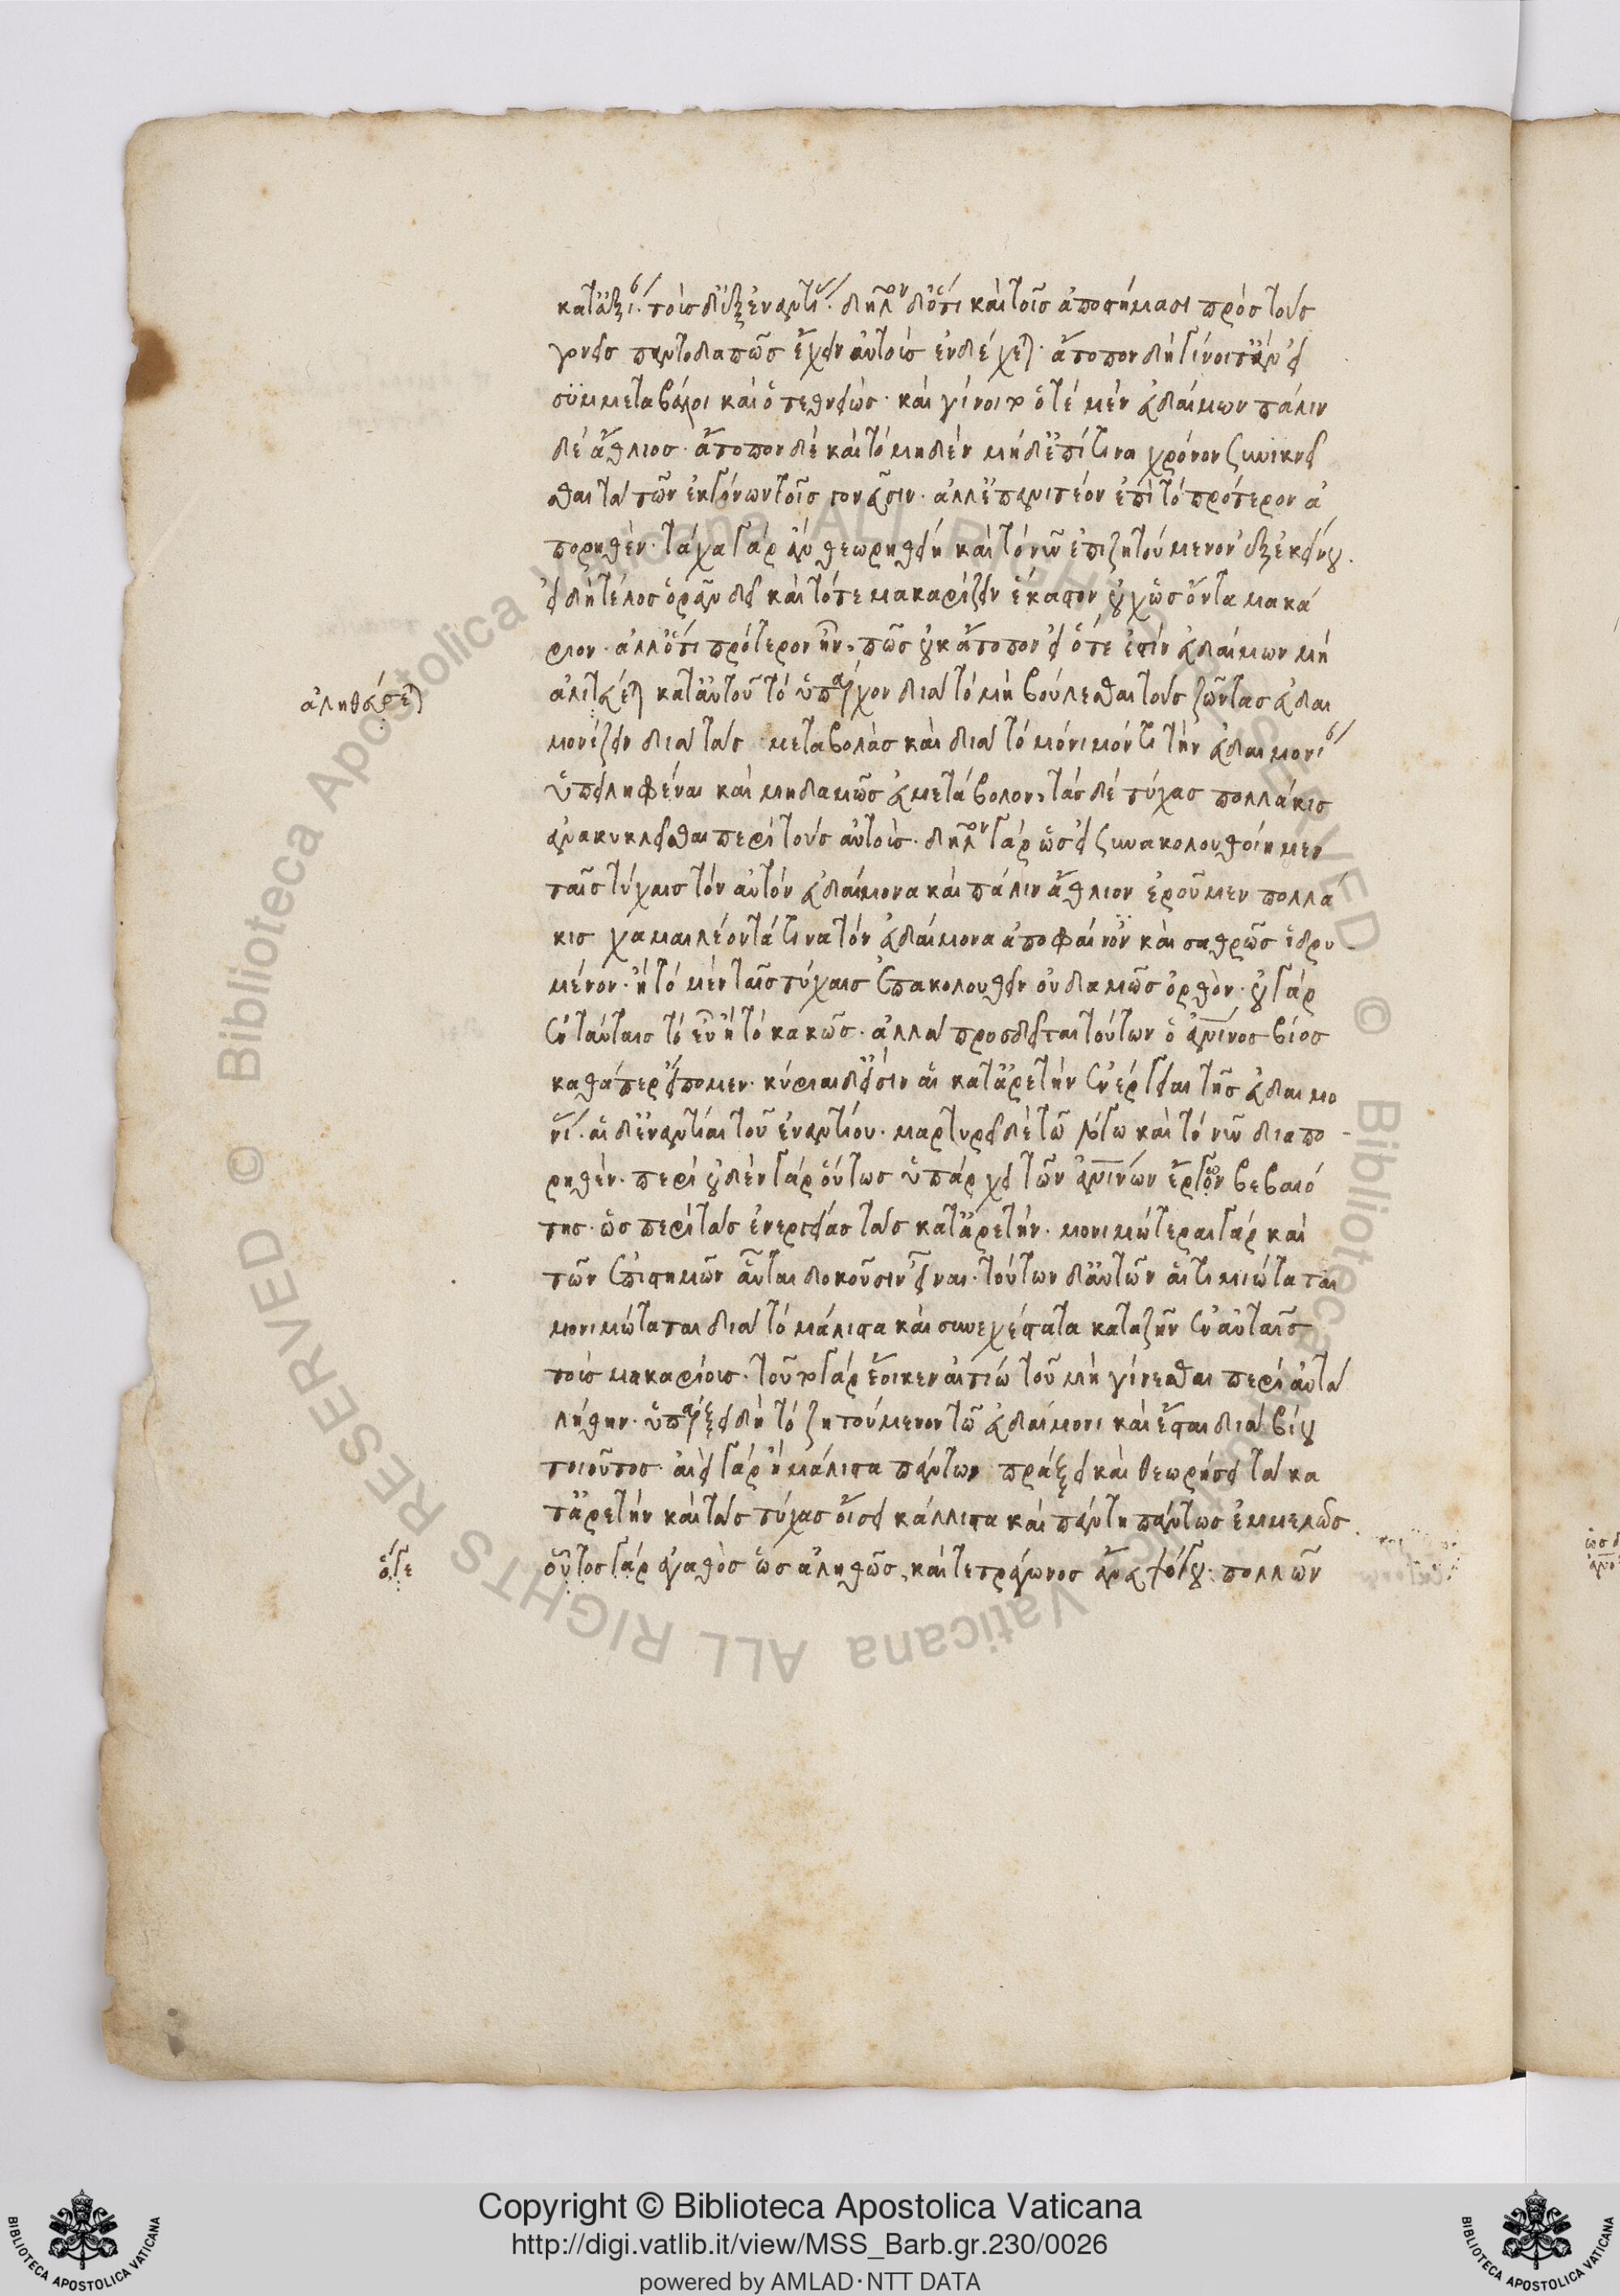 κατ' ἀξίαν· τοῖς δ' ἐξ ἐναντίας· δῆλον δ' ὅτι καὶ τοῖς ἀποστήμασι πρὸς τοὺς
γονεῖς παντοδαπῶς ἔχειν αὐτοὺς ἐνδέχεται· ἄτοπον δὴ γίνοιτ' ἂν εἰ
συμμεταβάλοι καὶ ὁ τεθνεὼς· καὶ γίνοιτο ὁτὲ μὲν εὐδαίμων πάλιν
δὲ ἄθλιος· ἄτοπον δὲ καὶ τὸ μηδὲν μηδ' ἐπί τινα χρόνον συνικνεῖ
σθαι τὰ τῶν ἐκγόνων τοῖς γονεῦσιν· ἀλλ' ἐπανιτέον ἐπὶ τὸ πρότερον ἀ
πορηθέν· τάχα γὰρ ἂν θεωρηθείη καὶ τὸ νῦν ἐπιζητούμενον ἐξ ἐκείνου·
εἰ δὴ τέλος ὁρᾶν δεῖ καὶ τότε μακαρίζειν ἕκαστον οὐχ ὡς ὄντα μακά
ριον· ἀλλ' ὅτι πρότερον ἦν, πῶς οὐκ ἄτοπον εἰ ὅτε ἐστὶν εὐδαίμων μὴ
ἀληθεύεται κατ' αὐτοῦ τὸ ὑπάρχον διὰ τὸ μὴ βούλεσθαι τοὺς ζῶντας εὐδαι
ἀληθεύσεται
μονίζειν διὰ τὰς μεταβολὰς καὶ διὰ τὸ μόνιμόν τι τὴν εὐδαιμονίαν
ὑπειληφέναι καὶ μηδαμῶς εὐμετάβολον, τὰς δὲ τύχας πολλάκις
ἀνακυκλεῖσθαι περὶ τοὺς αὐτούς· δῆλον γὰρ ὡς εἰ συνακολουθοίημεν
ταῖς τύχαις τὸν αὐτὸν εὐδαίμονα καὶ πάλιν ἄθλιον ἐροῦμεν πολλά
κις χαμαιλέοντά τινα τὸν εὐδαίμονα ἀποφαίνον καὶ σαθρῶς ἱδρυ-
μένον· ἢ τὸ μὲν ταῖς τύχαις ἐπακολουθεῖν οὐδαμῶς ὀρθόν· οὐ γὰρ
ἐν ταύταις τὸ εὖ ἢ τὸ κακῶς· ἀλλὰ προσδεῖται τούτων ὁ ἀνθρώπινος βίος
καθάπερ εἴπομεν· κύριαι δ' εἰσὶν αἱ κατ' ἀρετὴν ἐνέργειαι τῆς εὐδαιμο
νίας· αἱ δ' ἐναντίαι τοῦ ἐναντίου· μαρτυρεῖ δὲ τῷ λόγῳ καὶ τὸ νῦν διαπο-
ρηθέν· περὶ οὐδὲν γὰρ οὕτως ὑπάρχει τῶν ἀνθρωπίνων ἔργων βεβαιό
της· ὡς περὶ τὰς ἐνεργείας τὰς κατ' ἀρετήν· μονιμώτεραι γὰρ καὶ
τῶν ἐπιστημῶν αὗται δοκοῦσιν εἶναι· τούτων δ' αὐτῶν αἱ τιμιώταται
μονιμώταται διὰ τὸ μάλιστα καὶ συνεχέστατα καταζῆν ἐν αὐταῖς
τοὺς μακαρίους· τοῦτο γὰρ ἔοικεν αἰτίῳ τοῦ μὴ γίνεσθαι περὶ αὐτὰ
λήθην· ὑπάρξει δὴ τὸ ζητούμενον τῷ εὐδαίμονι καὶ ἔσται διὰ βίου
τοιοῦτος· αἰεὶ γὰρ ἢ μάλιστα πάντων πράξει καὶ θεωρήσει τὰ κα
τ' ἀρετὴν καὶ τὰς τύχας οἴσει κάλλιστα καὶ πάντῃ πάντως ἐμμελῶς
οὗτος γὰρ ἀγαθὸς ὡς ἀληθῶς, καὶ τετράγωνος ἄνευ ψόγου· πολλῶν
ὅ γε
Copyright © Biblioteca Apostolica Vaticana
http://digi.vatlib.it/view/MSS_Barb.gr.230/0026
powered by AMLAD·NTT DATA
BIBLIOTECA APOSTOLICA VATICANA
BIBLIOTECA APOSTOLICA VATICANA
© Biblioteca Apostolica Vaticana ALL RIGHTS RESERVED © Biblioteca Apostolica Vaticana ALL RIGHTS RESERVED